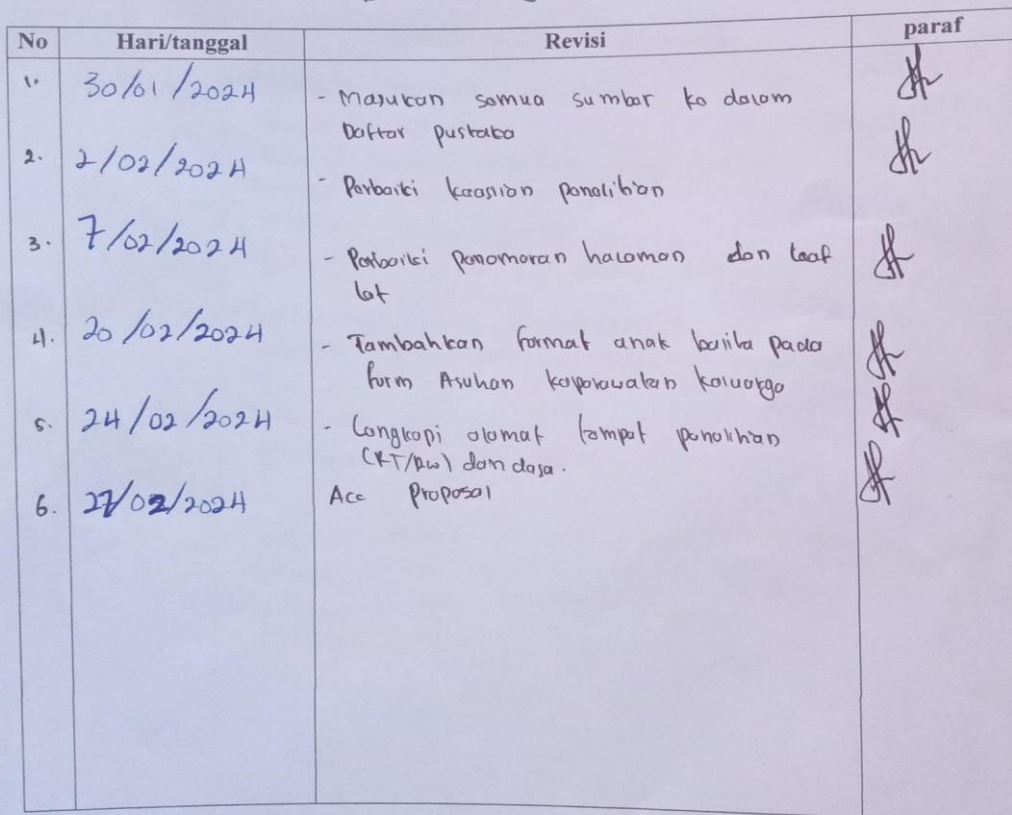 No Hari/tanggal Revisi paraf
1. 30/01/2024 - Masukan semua sumber ke dalam
Daftar pustaka
2. 2/02/2024
- Perbaiki keaslian penelitian
3. 7/02/2024 - Perbaiki penomoran halaman dan leaf
let
4. 20/02/2024 - Tambahkan format anak balita pada
form Asuhan keperawatan keluarga
5. 24/02/2024 - Lengkapi alamat tempat penelitian
(RT/RW) dan dasa.
6. 27/02/2024 Acc Proposal